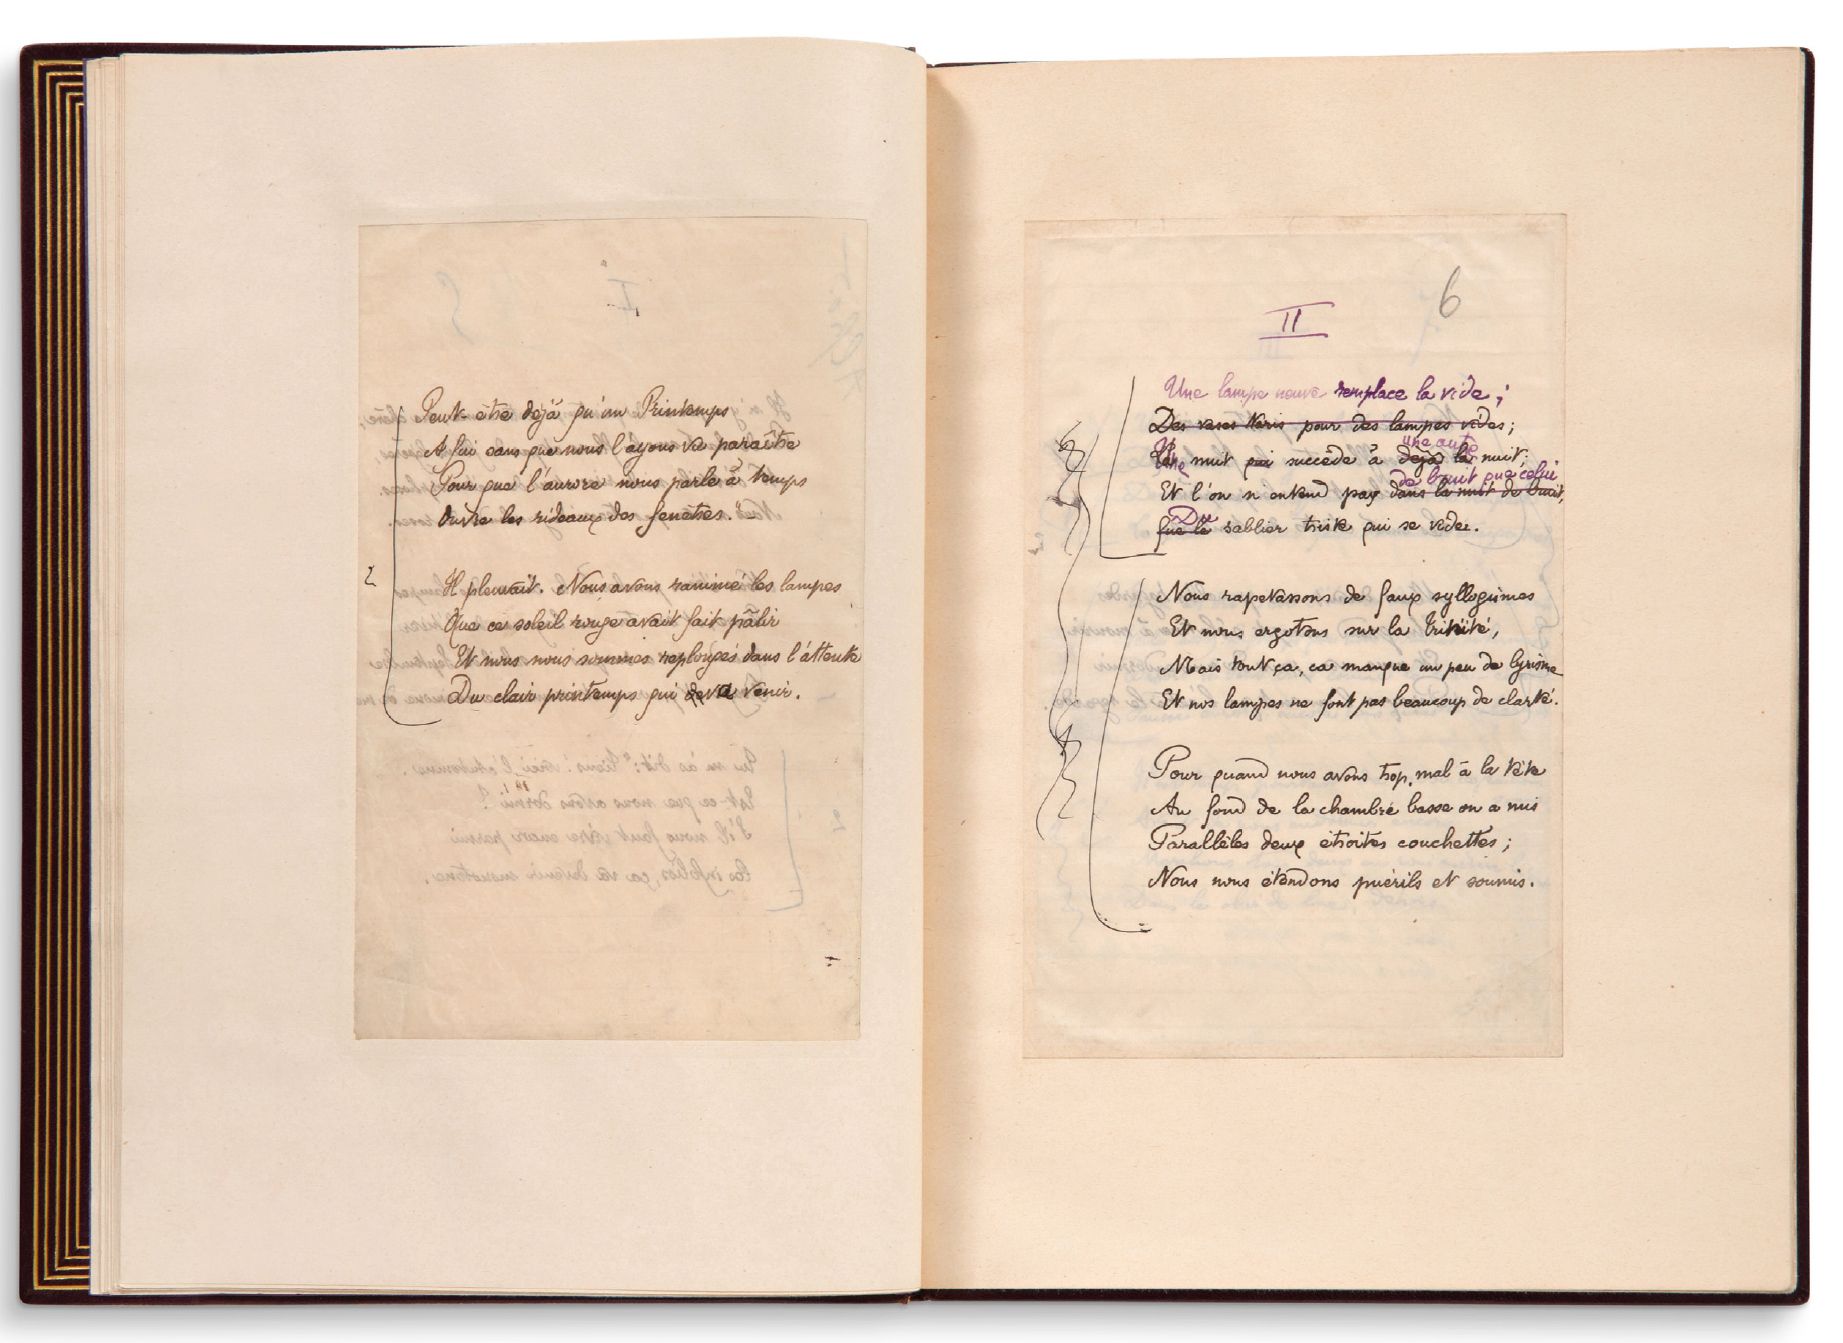 Peut-être déjà qu'un Printemps
A fui sans que nous l'ayons vu paraître
Pour que l'aurore nous parle à temps
Ouvre les rideaux des fenêtres.
2
Il pleuvait. Nous avons ranimé les lampes
Que ce soleil rouge avait fait pâlir
Et nous nous sommes replongés dans l'attente
Du clair printemps qui va venir.
6
II
Une lampe neuve remplace la vide ;
Des vases taris pour des lampes vides ;
une autre
Une nuit qui succède à déjà la nuit ;
de bruit que celui
Et l'on n'entend pas dans la nuit de bruit,
Du
que le sablier triste qui se vide.
Nous rapetassons de faux syllogismes
Et nous ergotons sur la Trinité,
Mais tout ça, ça manque un peu de lyrisme
Et nos lampes ne font pas beaucoup de clarté.
Pour quand nous avons trop mal à la tête
Au fond de la chambre basse on a mis
Parallèles deux étroites couchettes ;
Nous nous étendons puérils et soumis.